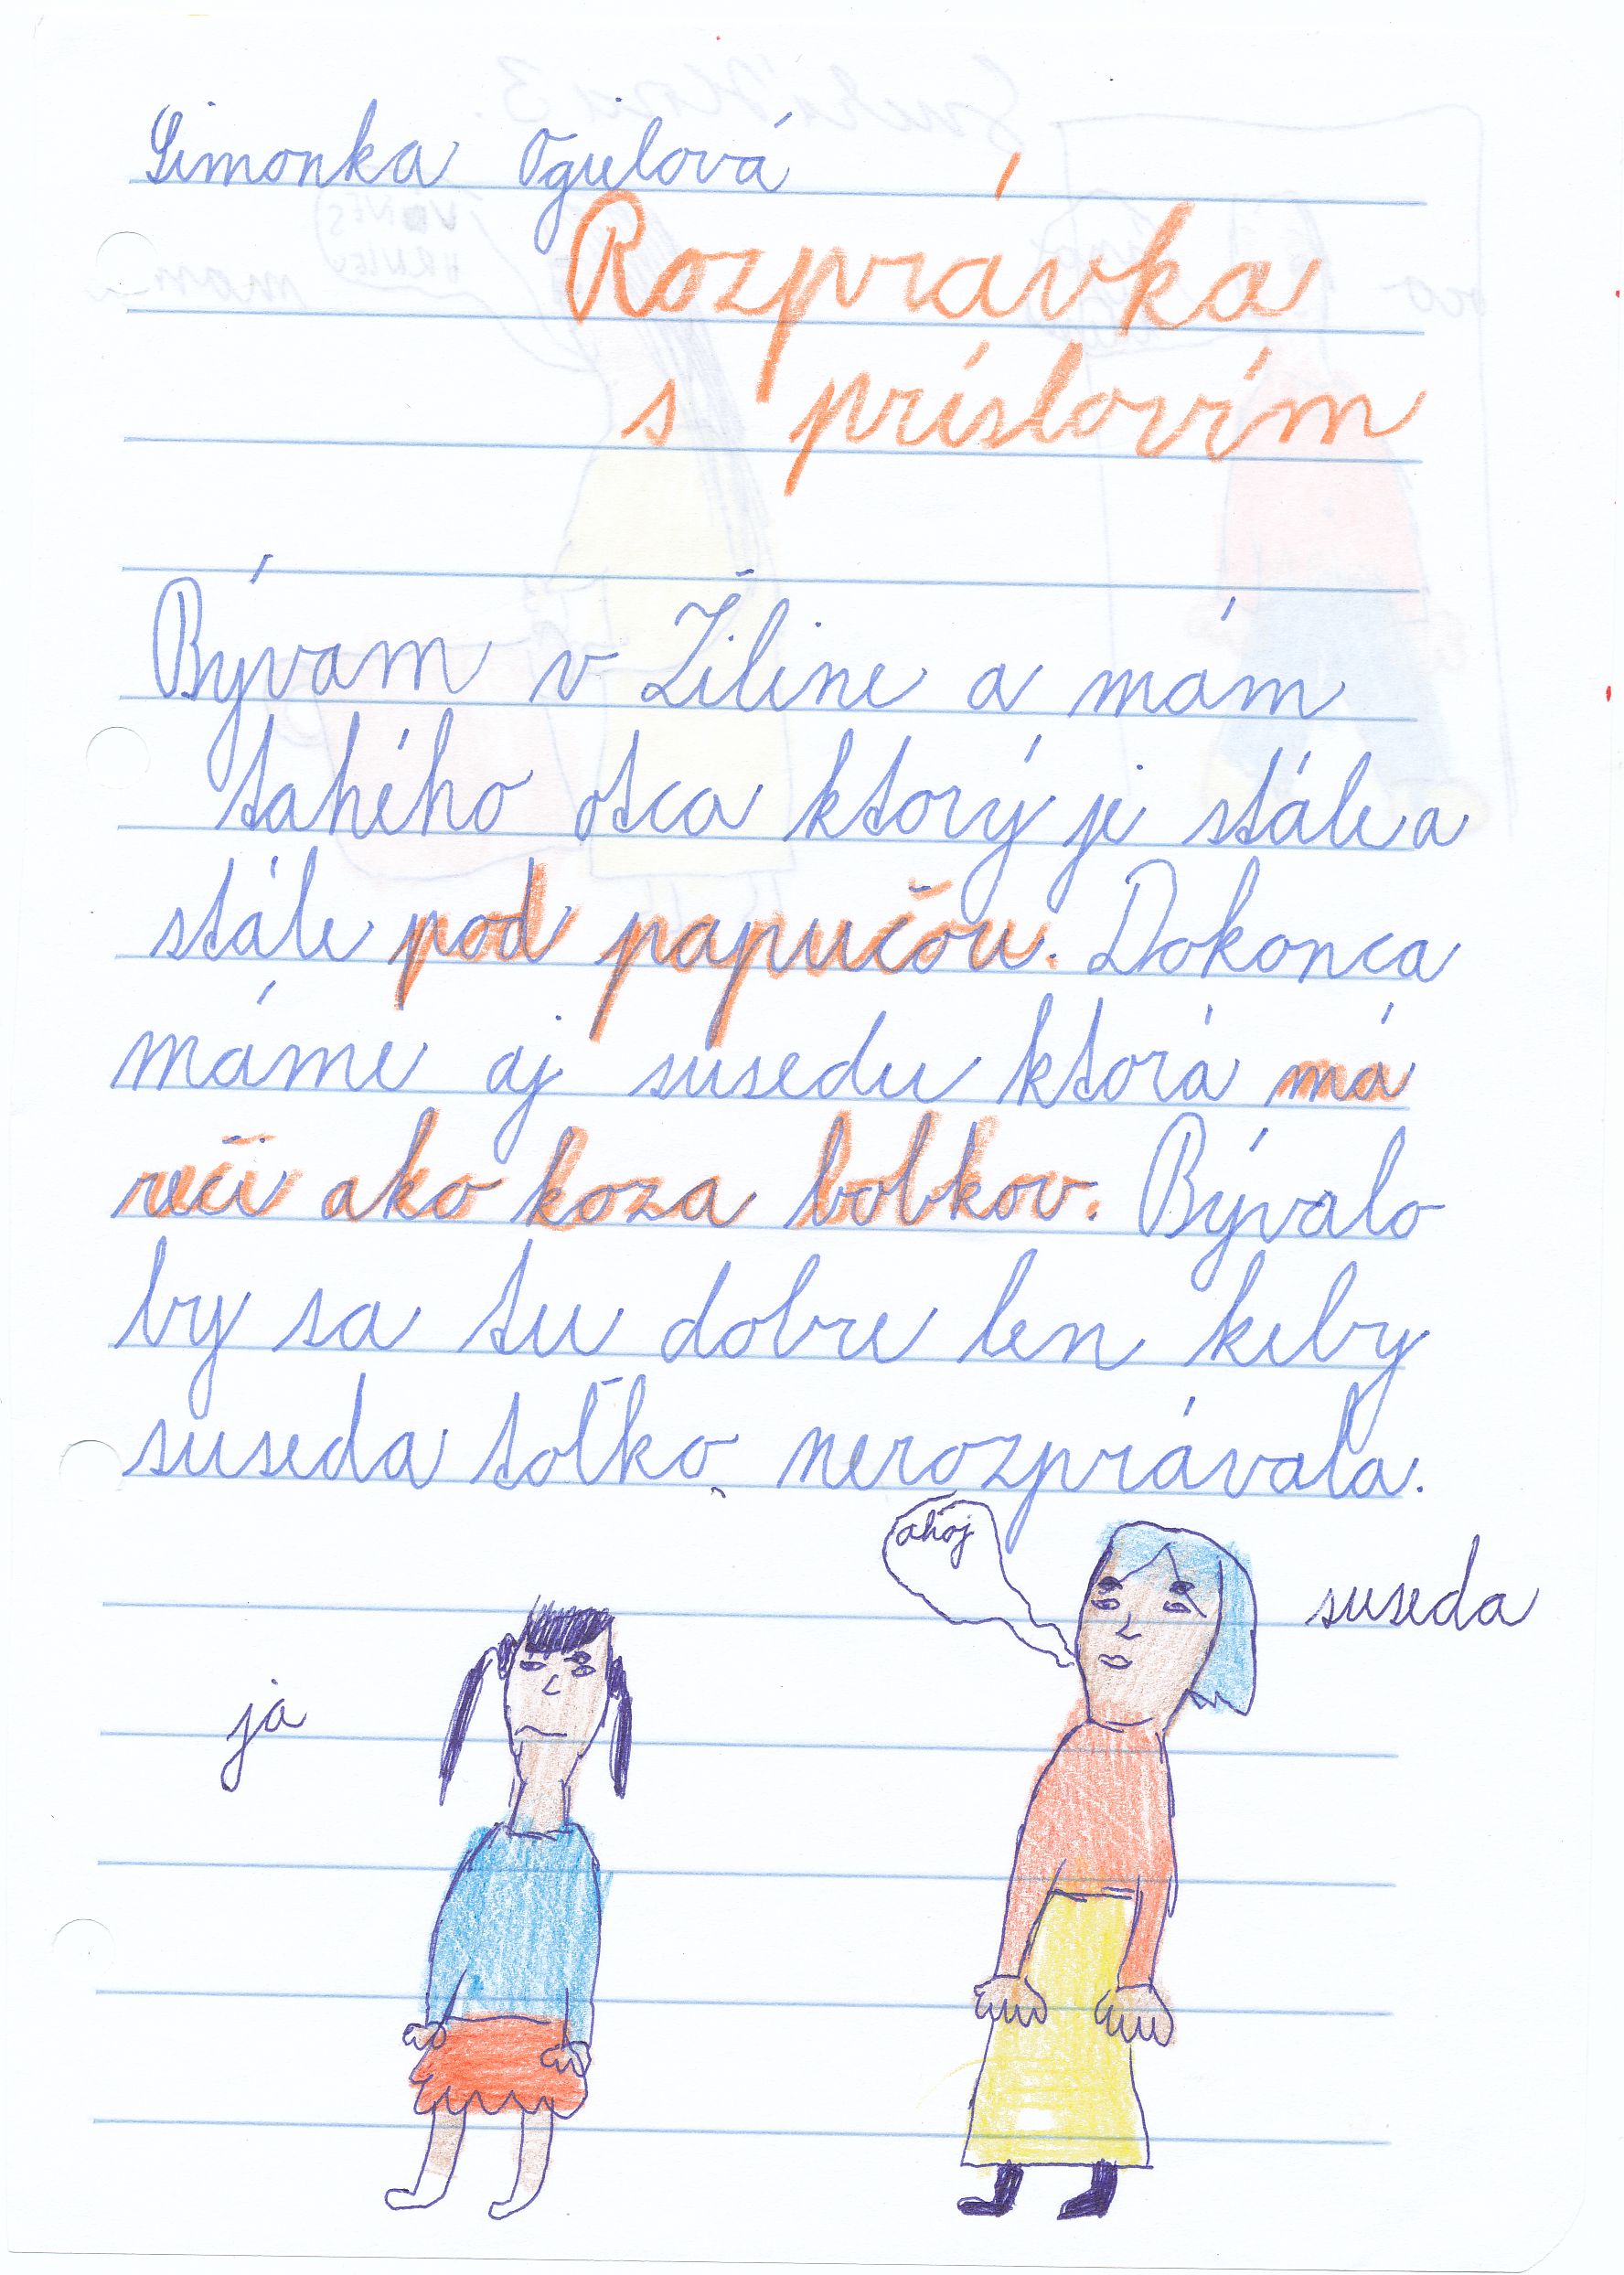 Simonka Ogulová
Rozprávka
s príslovím
Bývam v Žiline a mám
takého otca ktorý je stále a
stále pod papučou. Dokonca
máme aj susedu ktorá má
reči ako koza bobkov. Bývalo
by sa tu dobre len keby
suseda toľko nerozprávala.
ahoj
suseda
ja